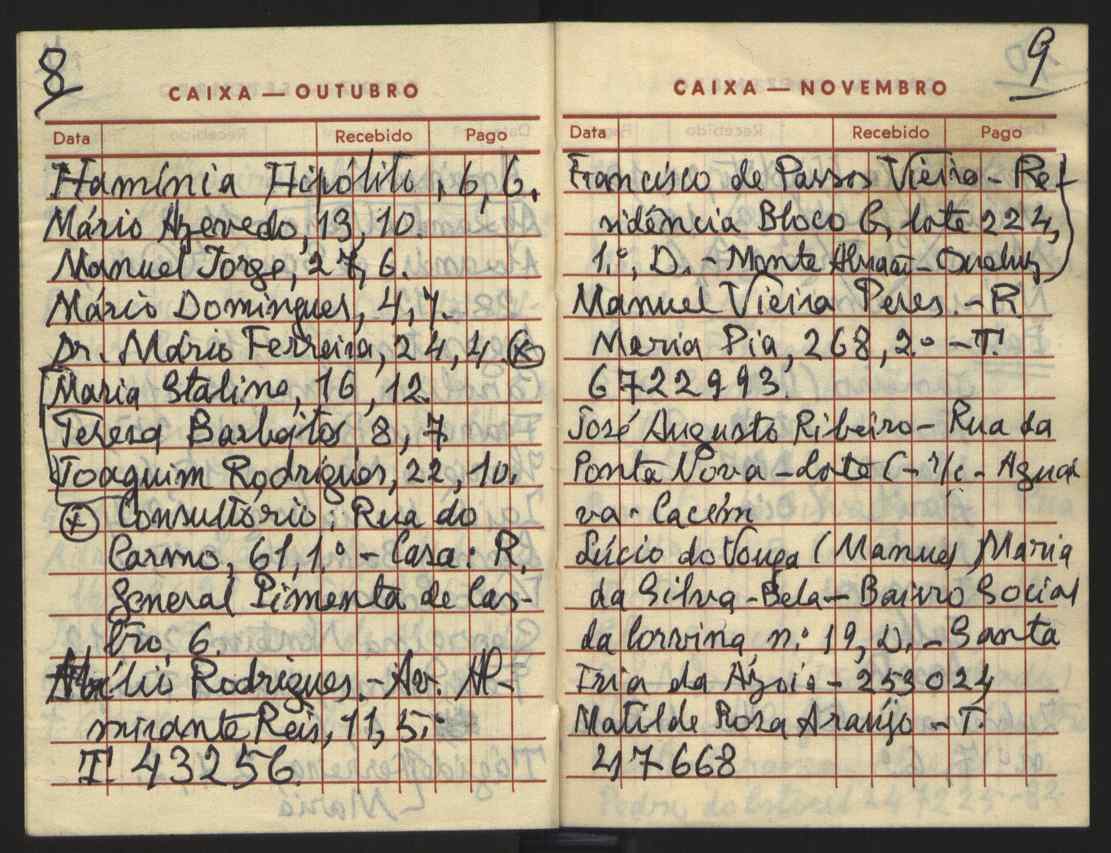 8
CAIXA — OUTUBRO
Data Recebido Pago
Hamínia Hipólito, 6, 6.
Mário Azevedo, 13, 10.
Manuel Jorge, 27, 6.
Mário Domingues, 4, 7.
Dr. Mário Ferreira, 24, 4. (x)
Maria Staline, 16, 12.
Teresa Barbaitos 8, 7
Joaquim Rodrigues, 22, 10.
(x) Consultório: Rua do
Carmo, 61, 1.º - Casa: R.
General Pimenta de Cas-
tro, 6.
Abílio Rodrigues. - Av. Al-
mirante Reis, 11, 5.º
T 43256
9
CAIXA — NOVEMBRO
Data Recebido Pago
Francisco de Passos Vieira - Re-
sidência Bloco G, lote 224,
1.º, D. - Monte Abraão - Queluz
Manuel Vieira Peres. - R
Maria Pia, 268, 2.º - T.
6722993.
José Augusto Ribeiro - Rua da
Ponte Nova - Lote C - r/c - Agual-
va - Cacém
Lúcio do Vouga (Manuel) Maria
da Silva - Bela - Bairro Social
da Covina n.º 19, D. - Santa
Iria da Azóia - 253024
Matilde Rosa Araújo - T.
47668